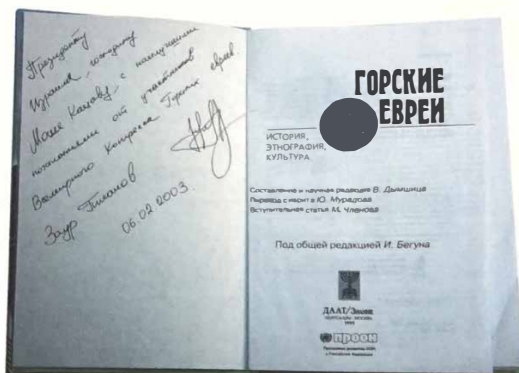 Президенту
Израиля господину
Моше Кацаву с наилучшими
пожеланиями от участников
Всемирного Конгресса Горских евреев
Заур
06.02.2003.
ГОРСКИЕ
ЕВРЕИ
ИСТОРИЯ,
ЭТНОГРАФИЯ,
КУЛЬТУРА
Составление и научная редакция В. Дымшица
Перевод с иврита Ю. Мурадова
Вступительная статья М. Членова
Под общей редакцией И. Бегуна
ДААТ/Знание
ПРООН